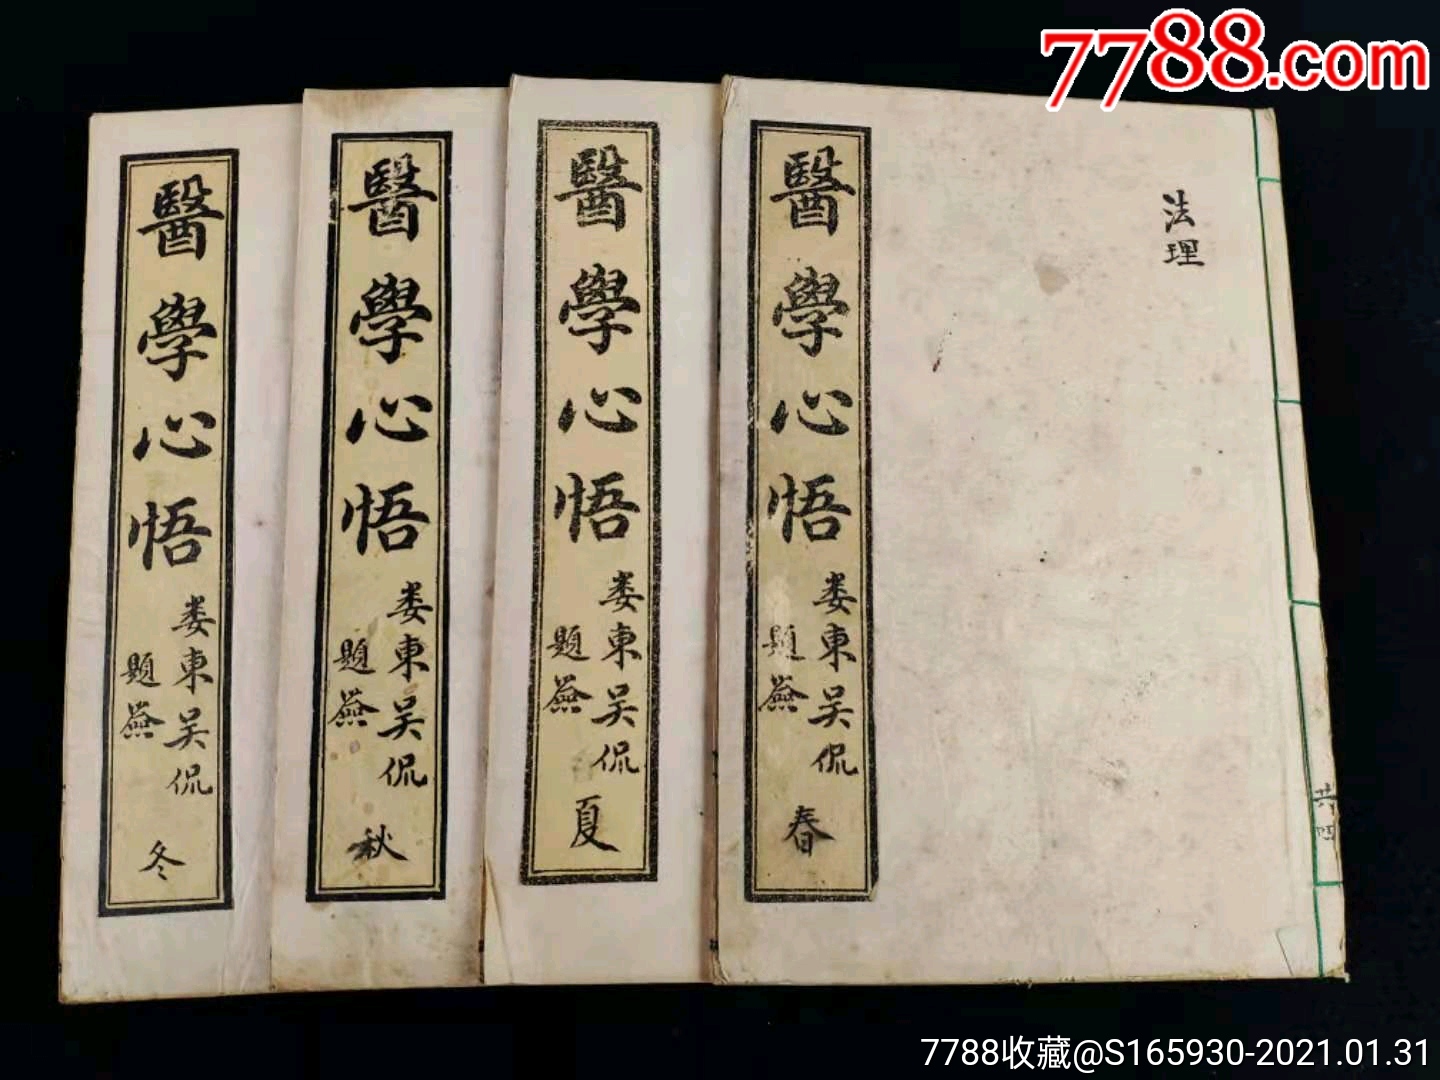 7788.com
法理
醫學心悟
婁東吴侃
題簽
春
共四
醫學心悟
婁東吴侃
題簽
夏
醫學心悟
婁東吴侃
題簽
秋
醫學心悟
婁東吴侃
題簽
冬
7788收藏@S165930-2021.01.31